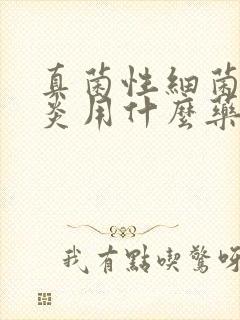 真菌性細菌
炎用什麼藥
我有點喫驚呀